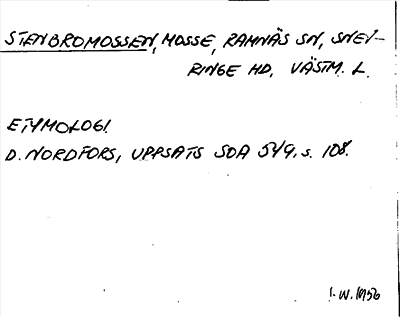 STENBROMOSSEN, MOSSE, RAMNÄS SN, SNEV-
RINGE HD, VÄSTM. L.
ETYMOLOGI.
D. NORDFORS, UPPSATS SOA 549, s. 108.
I. W. 1956